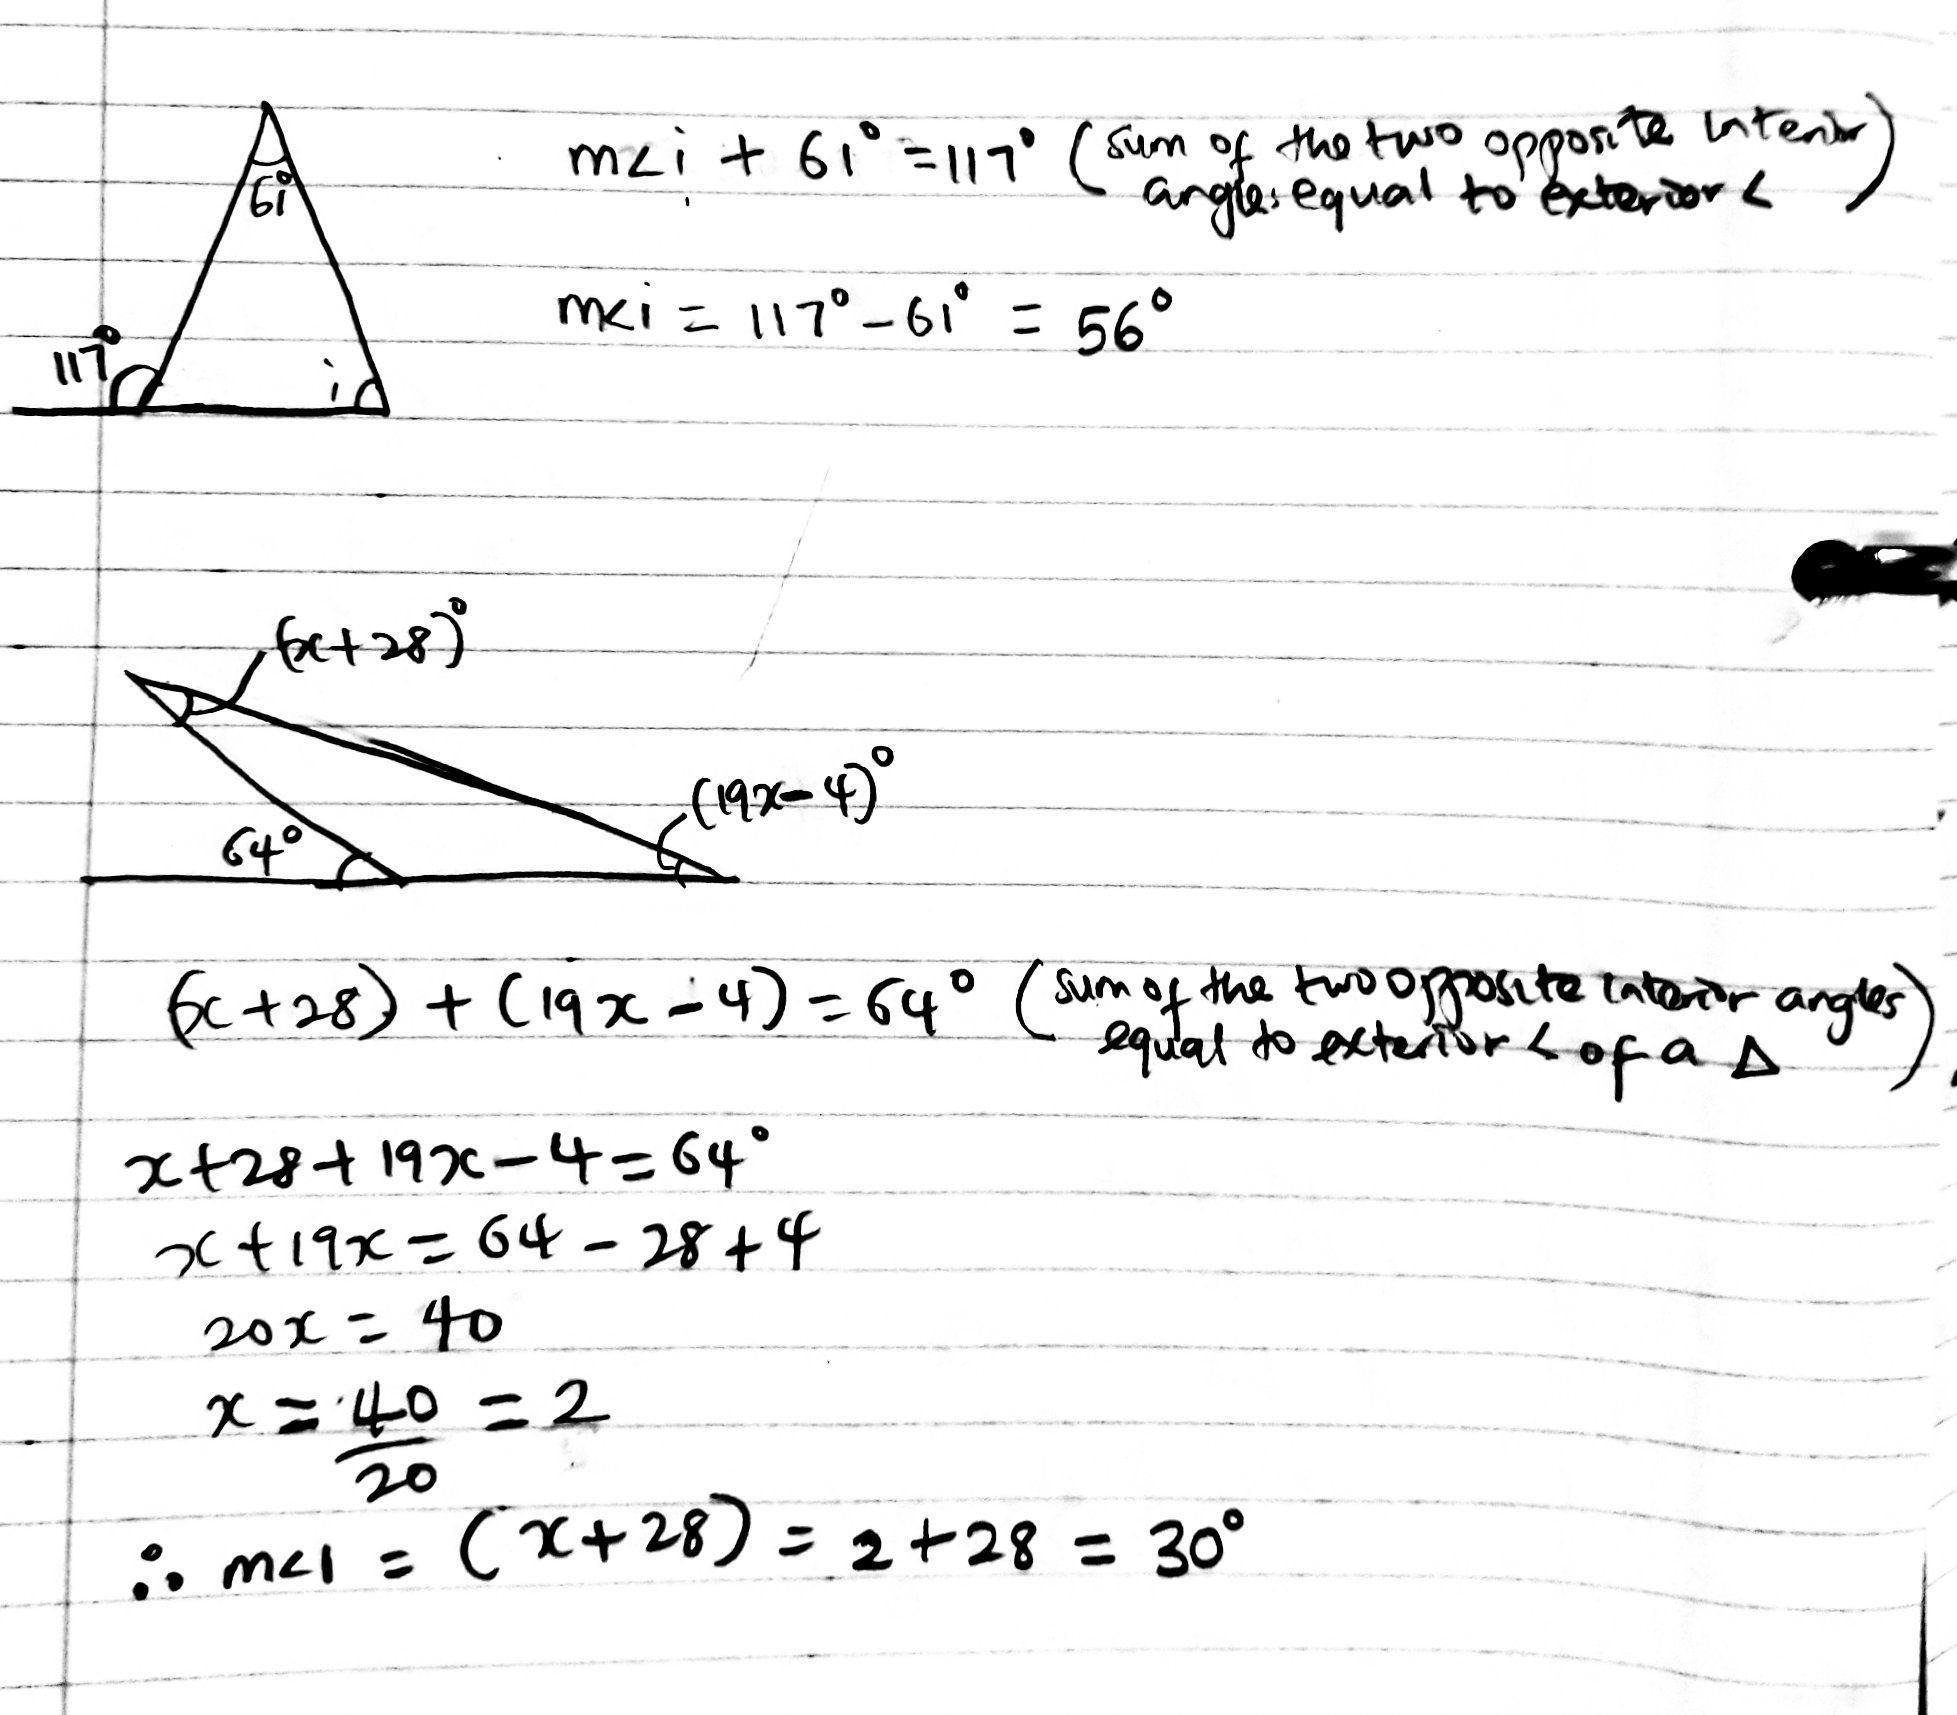 61°
117°
i
m<i + 61° = 117° (sum of the two opposite interior
angles equal to exterior <)
m<i = 117° - 61° = 56°
(x+28)°
(19x-4)°
64°
(x+28) + (19x-4) = 64° (sum of the two opposite interior angles
equal to exterior < of a Δ)
x+28+19x-4=64°
x+19x = 64 - 28 + 4
20x = 40
x = 40/20 = 2
∴ m<1 = (x+28) = 2+28 = 30°